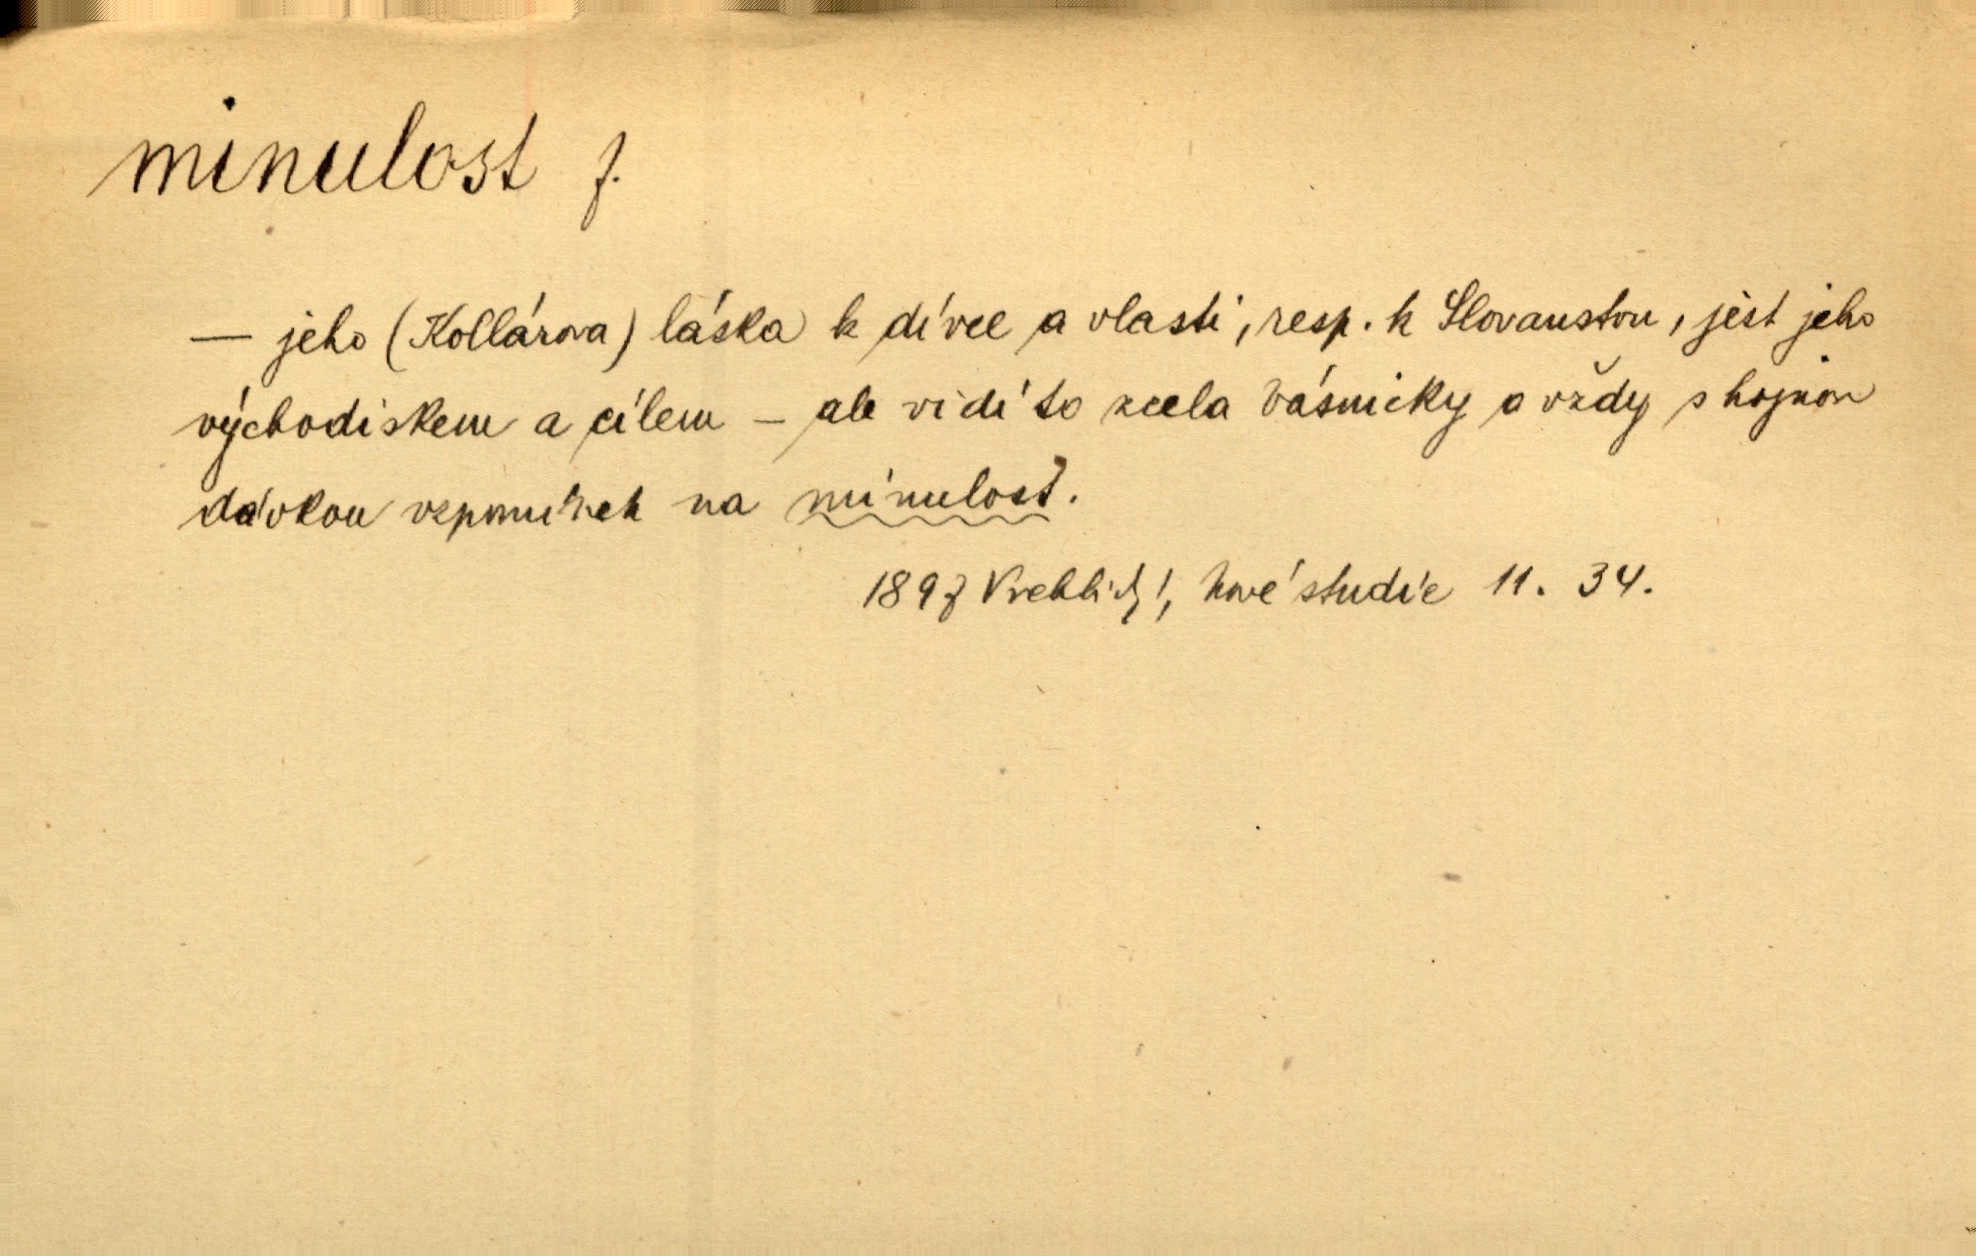 minulost f.
— jeho (Kollárova) láska k dívce a vlasti, resp. k Slovanstvu, jest jeho
východiskem a cílem – ale vidí to zcela básnicky a vždy s hojnou
dávkou vzpomínek na minulost.
1897 Vrchlický, Nové studie 11. 34.